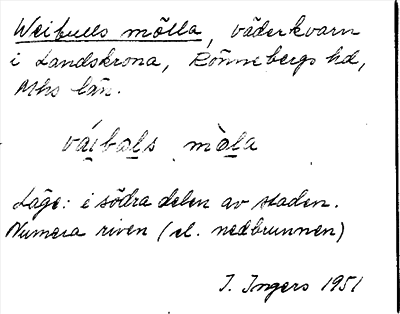 Weibulls mölla, väderkvarn
i Landskrona, Rönnebergs hd,
Mhs län.
váibals mὰla
Läge: i södra delen av staden.
Numera riven (el. nedbrunnen)
I. Ingers 1951